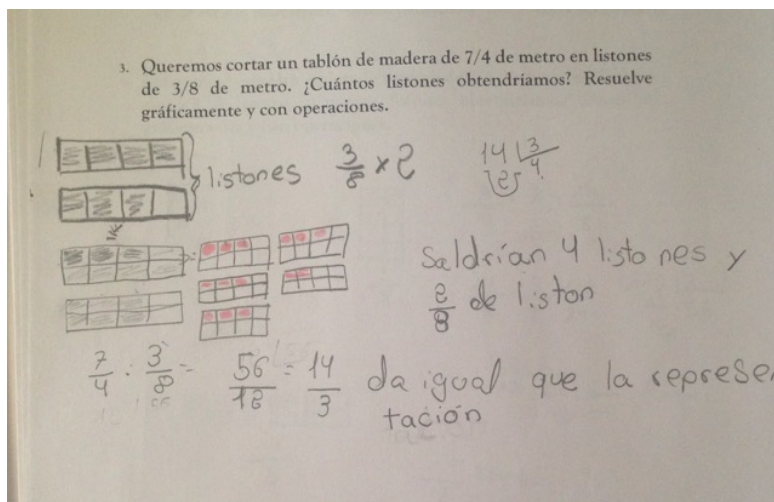 3. Queremos cortar un tablón de madera de 7/4 de metro en listones
de 3/8 de metro. ¿Cuántos listones obtendríamos? Resuelve
gráficamente y con operaciones.
listones 3/8 x 2 14 | 3
2 4
Saldrían 4 listones y
2/8 de liston
7/4 : 3/8 = 56/12 = 14/3 da igual que la represe
tación